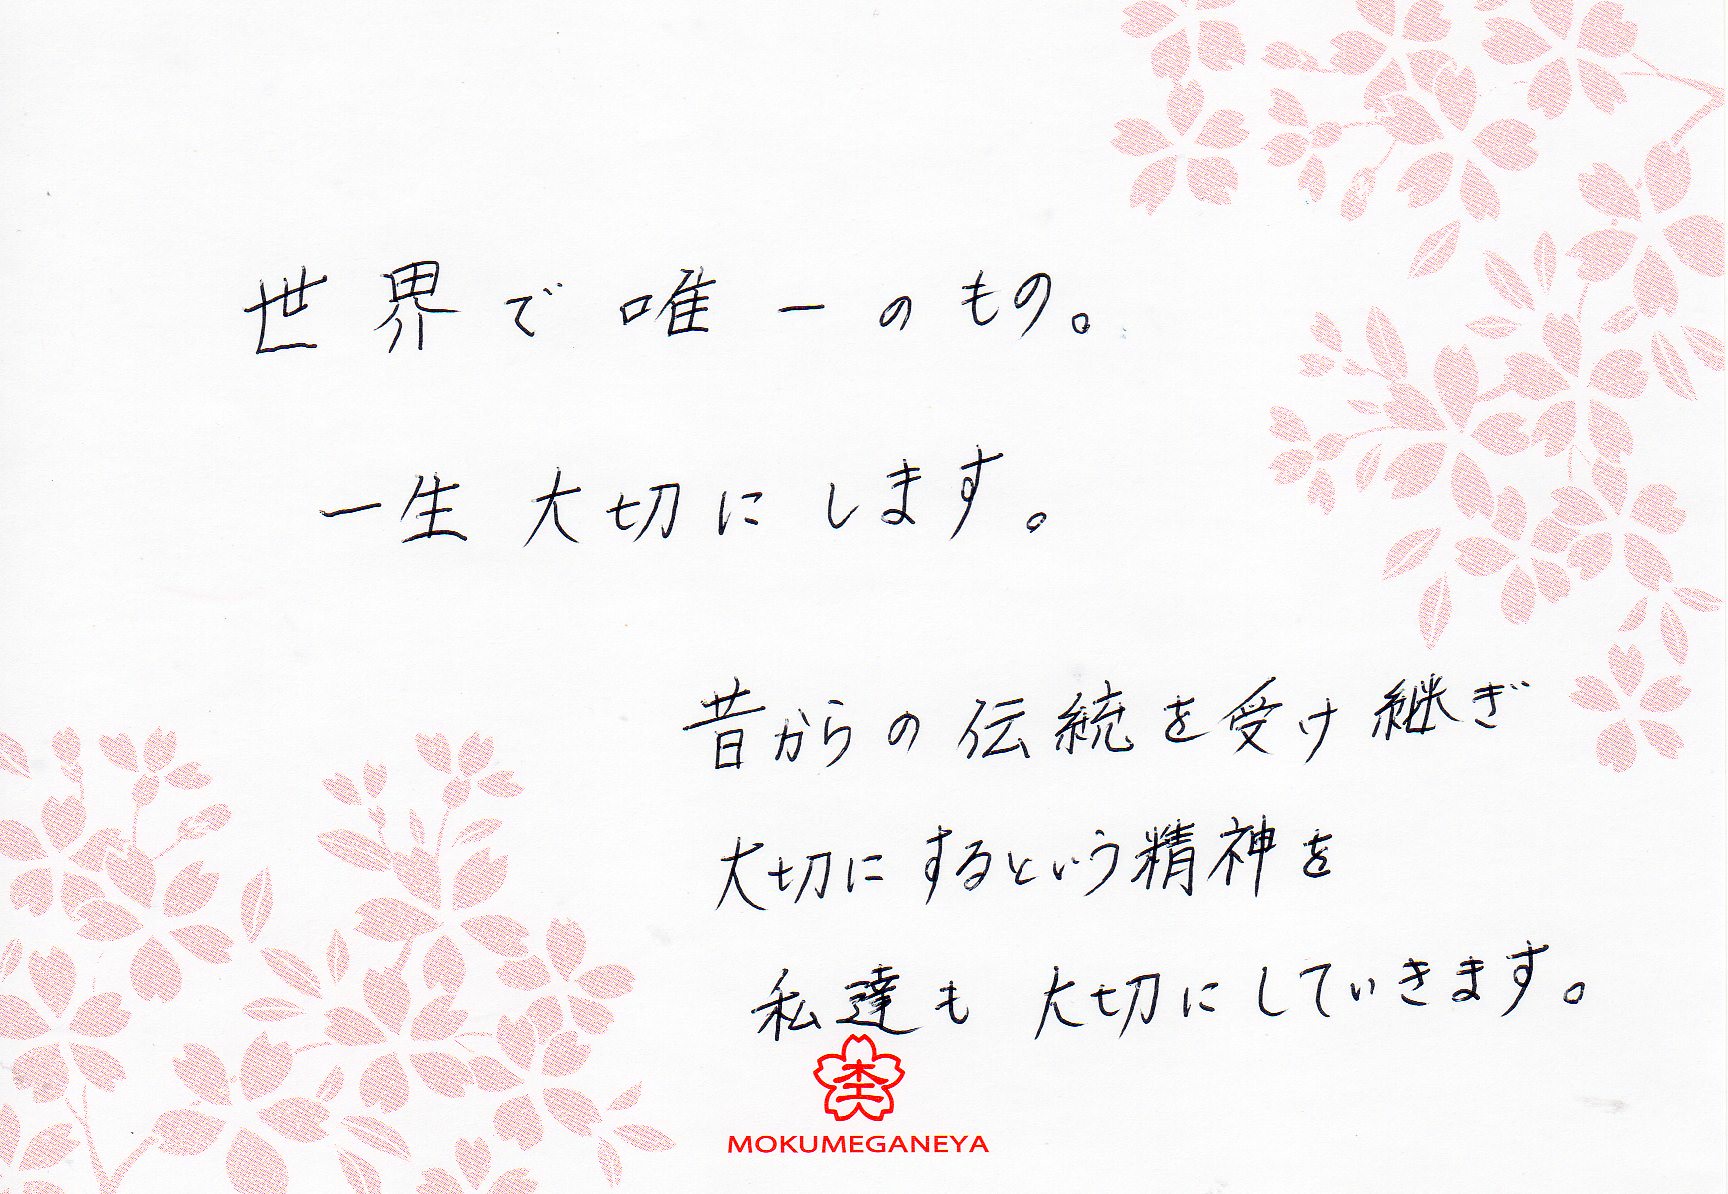 世界で唯一のもの。
一生大切にします。
昔からの伝統を受け継ぎ
大切にするという精神を
私達も大切にしていきます。
MOKUMEGANEYA